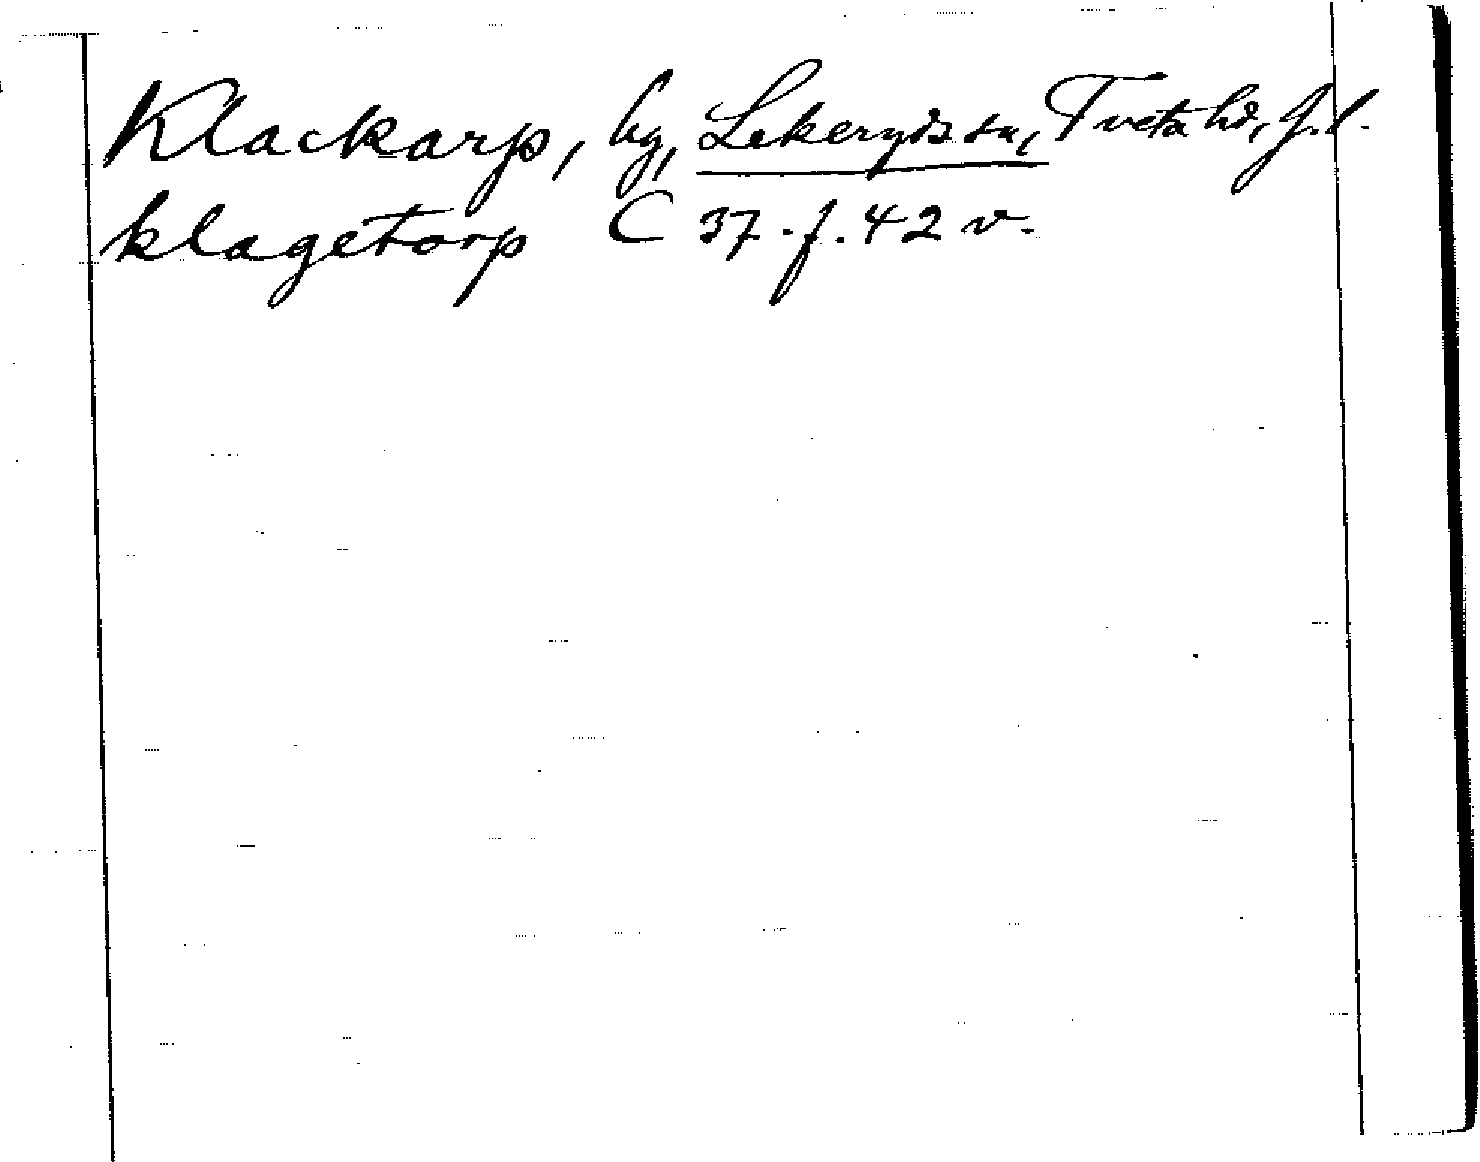 Klackarp, by, Lekeryds sn, Tveta hd, J. l.
klagetorp C 37. f. 42 v.